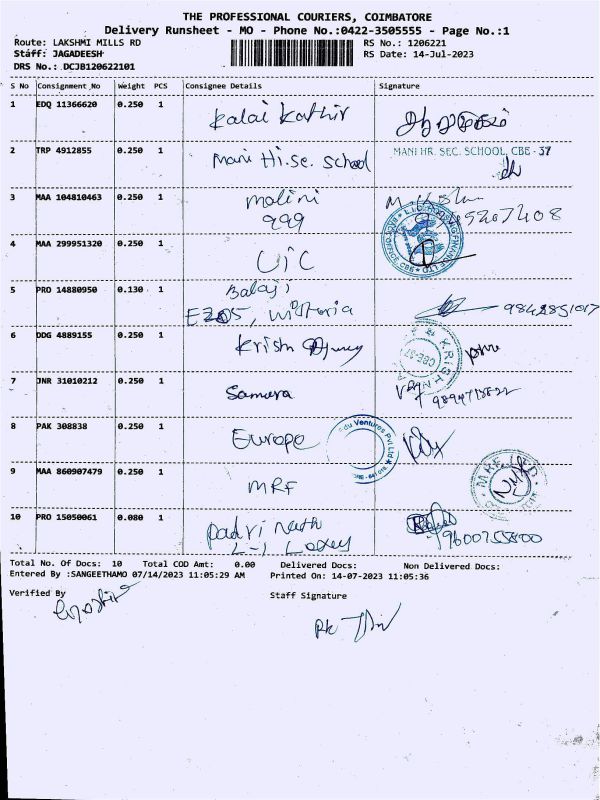 THE PROFESSIONAL COURIERS, COIMBATORE
Delivery Runsheet - MO - Phone No.:0422-3505555 - Page No.:1
Route: LAKSHMI MILLS RD RS No.: 1206221
Staff: JAGADEESH RS Date: 14-Jul-2023
DRS No.: DCJB120622101
S No Consignment_No Weight PCS Consignee Details Signature
1 EDQ 11366620 0.250 1 Kalai Kathir
2 TRP 4912855 0.250 1 Mani Hi.Se. School MANI HR. SEC. SCHOOL, CBE - 37
3 MAA 104810463 0.250 1 malini
999
4 MAA 299951320 0.250 1 UiC
5 PRO 14880950 0.130 1 Balaji
6 DDG 4889155 0.250 1 Krish
CBE-37
7 JNR 31010212 0.250 1 Samura
8 PAK 308838 0.250 1 Europe
Edu Ventures Pvt Ltd
9 MAA 860907479 0.250 1 MRF
10 PRO 15050061 0.080 1 Padri nath
9600755800
Total No. Of Docs: 10 Total COD Amt: 0.00 Delivered Docs: Non Delivered Docs:
Entered By :SANGEETHAMO 07/14/2023 11:05:29 AM Printed On: 14-07-2023 11:05:36
Verified By Staff Signature